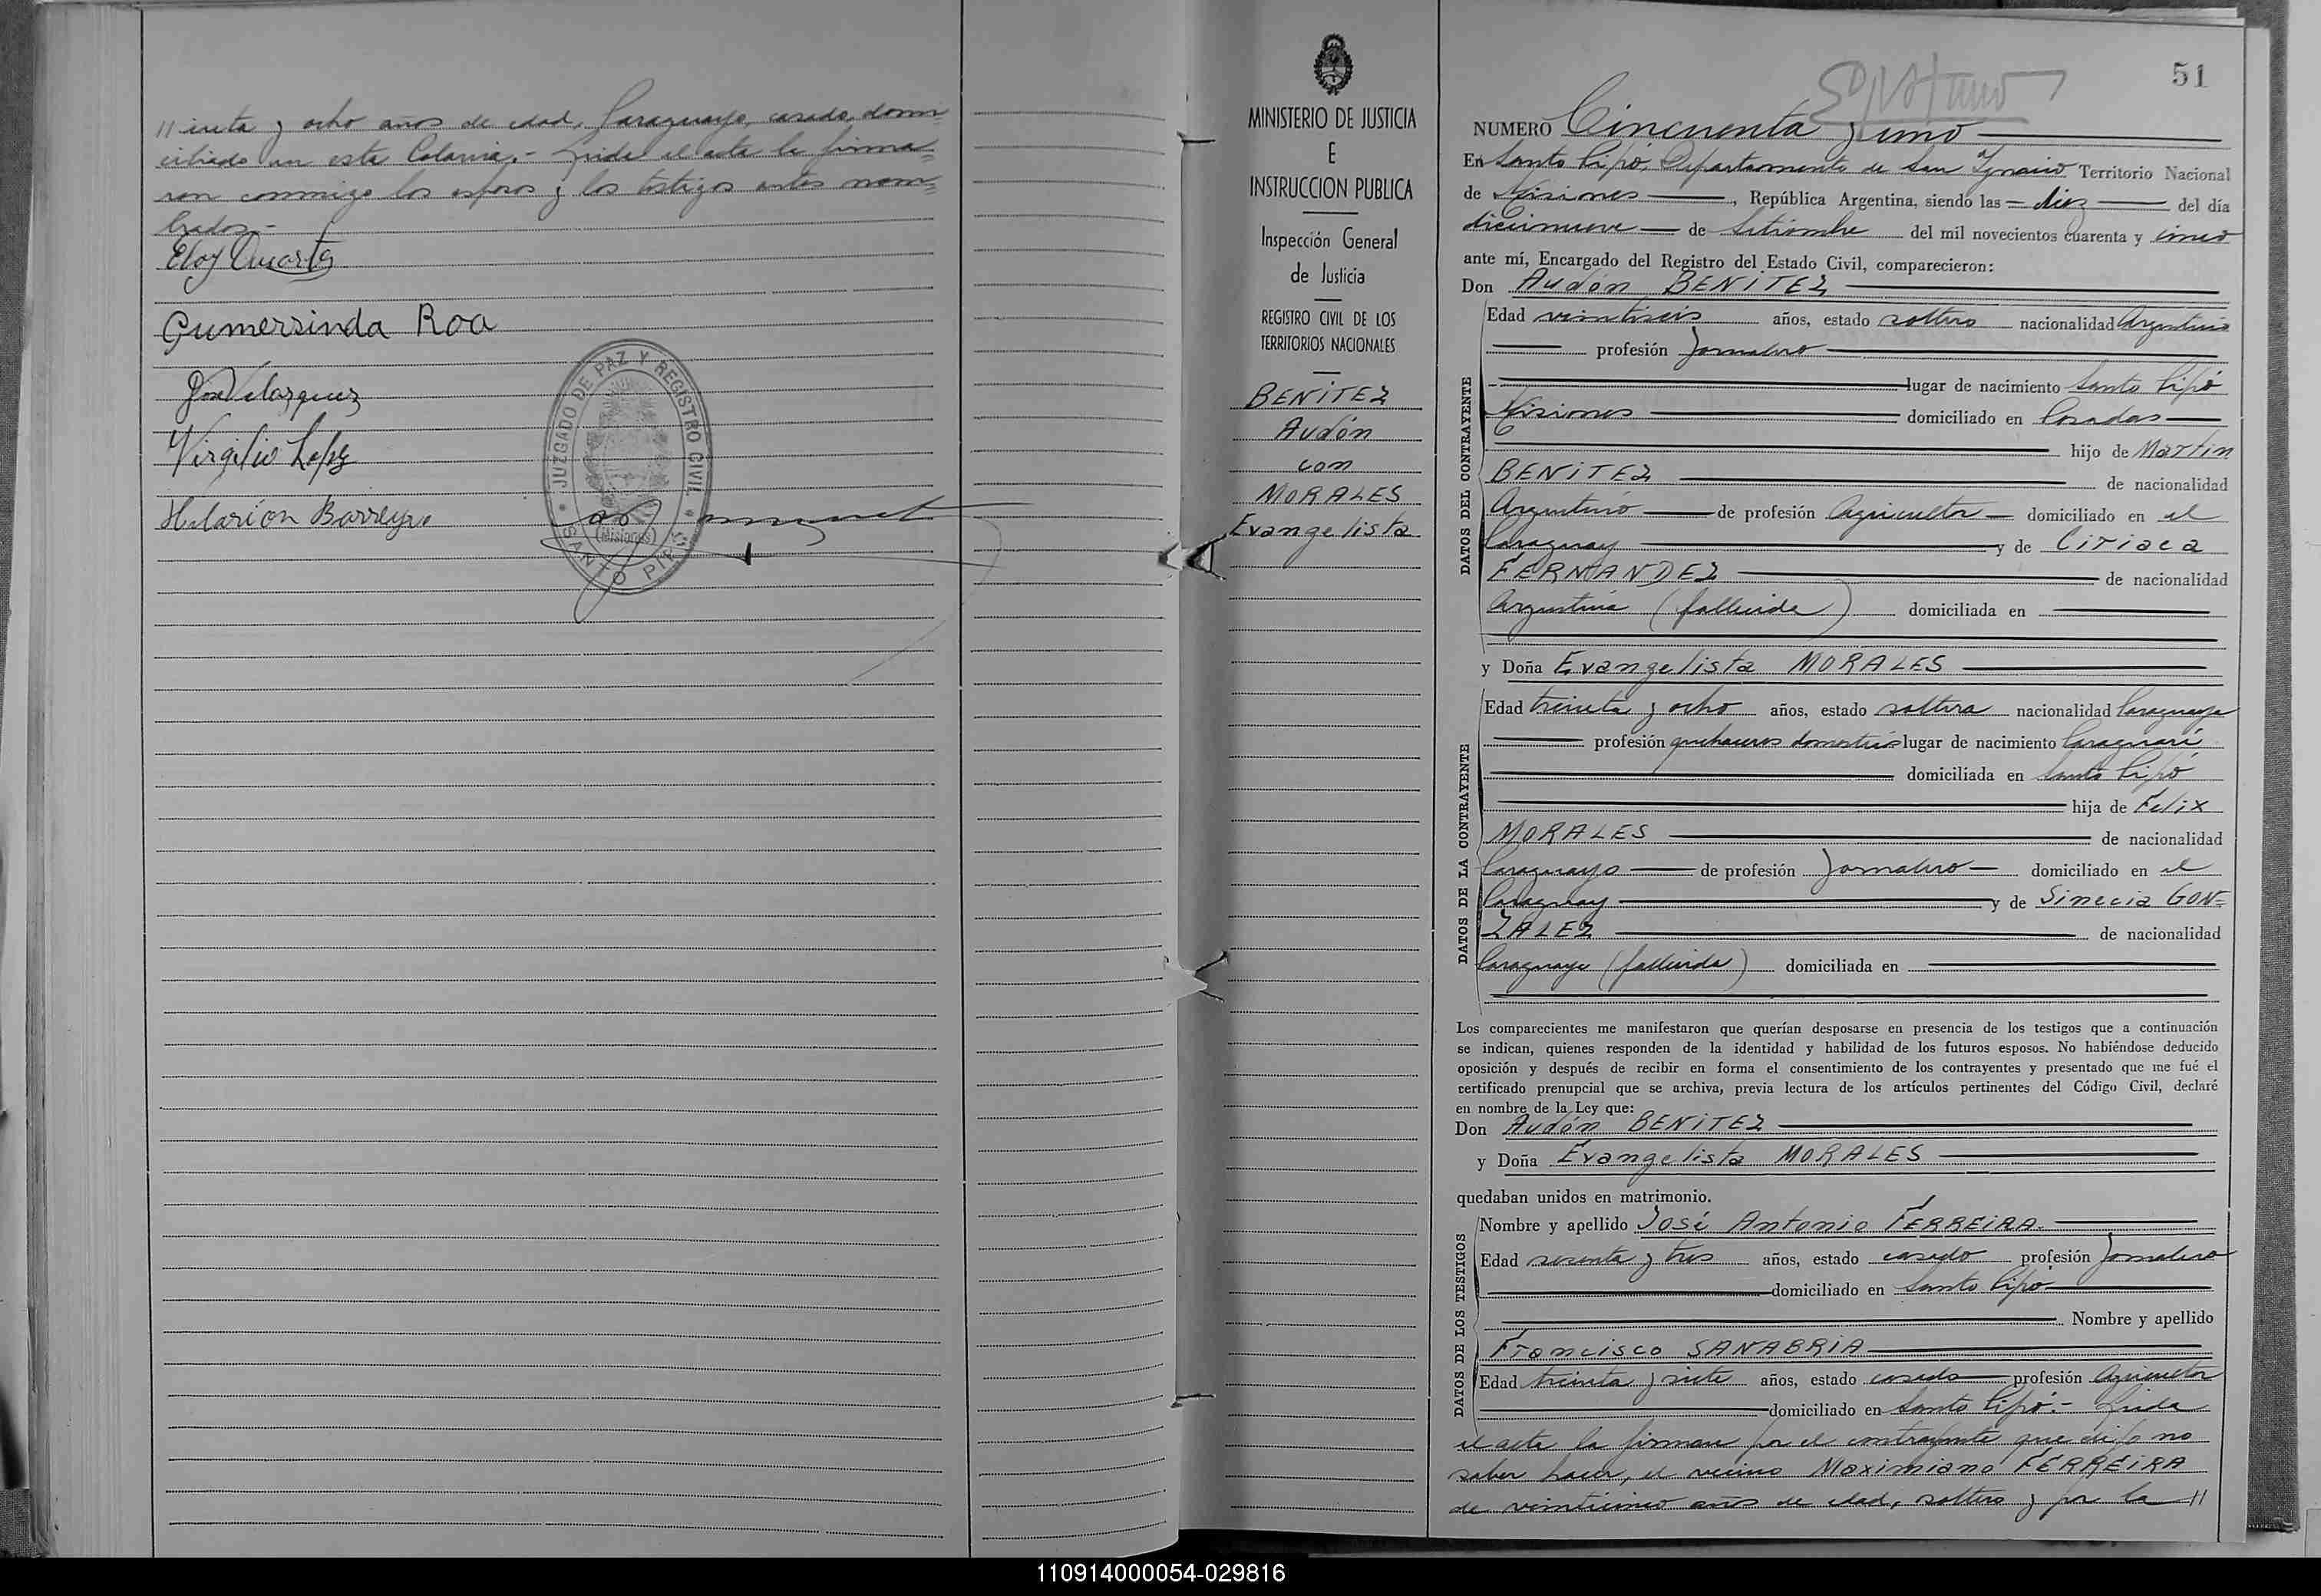 // inta y ocho años de edad, Paraguayo, casado, domi
ciliado en esta Colonia.- Leída el acta la firma=
ron conmigo los esposos y los testigos antes nom=
brados.-
Eloy Duarte
Gumersinda Roa
José Velazquez
Virgilio Lopez
Hilarión Barreyro
JUZGADO DE PAZ Y REGISTRO CIVIL
(MISIONES)
SANTO PIPO
MINISTERIO DE JUSTICIA
E
INSTRUCCION PUBLICA
Inspección General
de Justicia
REGISTRO CIVIL DE LOS
TERRITORIOS NACIONALES
BENITEZ
Audón
con
MORALES
Evangelista
51
NUMERO Cincuenta y uno
En Santo Pipó, Departamento de San Ignacio Territorio Nacional
de Misiones, República Argentina, siendo las diez del día
diecinueve de Setiembre del mil novecientos cuarenta y cinco
ante mí, Encargado del Registro del Estado Civil, comparecieron:
Don Audón BENITEZ
DATOS DEL CONTRAYENTE
Edad veintiseis años, estado soltero nacionalidad Argentino
profesión Jornalero
lugar de nacimiento Santo Pipó
Misiones domiciliado en Posadas
hijo de Martin
BENITEZ de nacionalidad
Argentino de profesión Agricultor domiciliado en el
Paraguay y de Ciriaca
FERNANDEZ de nacionalidad
Argentina (fallecida) domiciliada en
y Doña Evangelista MORALES
DATOS DE LA CONTRAYENTE
Edad treinta y ocho años, estado soltera nacionalidad Paraguaya
profesión quehaceres domesticos lugar de nacimiento Paraguari
domiciliada en Santo Pipó
hija de Felix
MORALES de nacionalidad
Paraguayo de profesión Jornalero domiciliado en el
Paraguay y de Sinecia GON=
ZALEZ de nacionalidad
Paraguaya (fallecida) domiciliada en
Los comparecientes me manifestaron que querían desposarse en presencia de los testigos que a continuación
se indican, quienes responden de la identidad y habilidad de los futuros esposos. No habiéndose deducido
oposición y después de recibir en forma el consentimiento de los contrayentes y presentado que me fué el
certificado prenupcial que se archiva, previa lectura de los artículos pertinentes del Código Civil, declaré
en nombre de la Ley que:
Don Audón BENITEZ
y Doña Evangelista MORALES
quedaban unidos en matrimonio.
DATOS DE LOS TESTIGOS
Nombre y apellido José Antonio FERREIRA.
Edad sesenta y tres años, estado casado profesión Jornalero
domiciliado en Santo Pipó
Nombre y apellido
Francisco SANABRIA
Edad treinta y siete años, estado casado profesión Agricultor
domiciliado en Santo Pipó.- Leída
el acta la firman por el contrayente que dijo no
saber hacer, el vecino Maximiano FERREIRA
de veinticinco años de edad, soltero y por la //
110914000054-029816